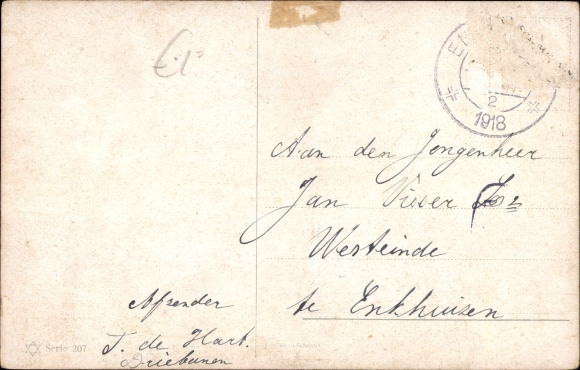 £1=
E
2
1918
Aan den Jongenheer
Jan Visser
Westeinde
te Enkhuizen
Afzender
T. de Hart.
Driebanen
Serie 207